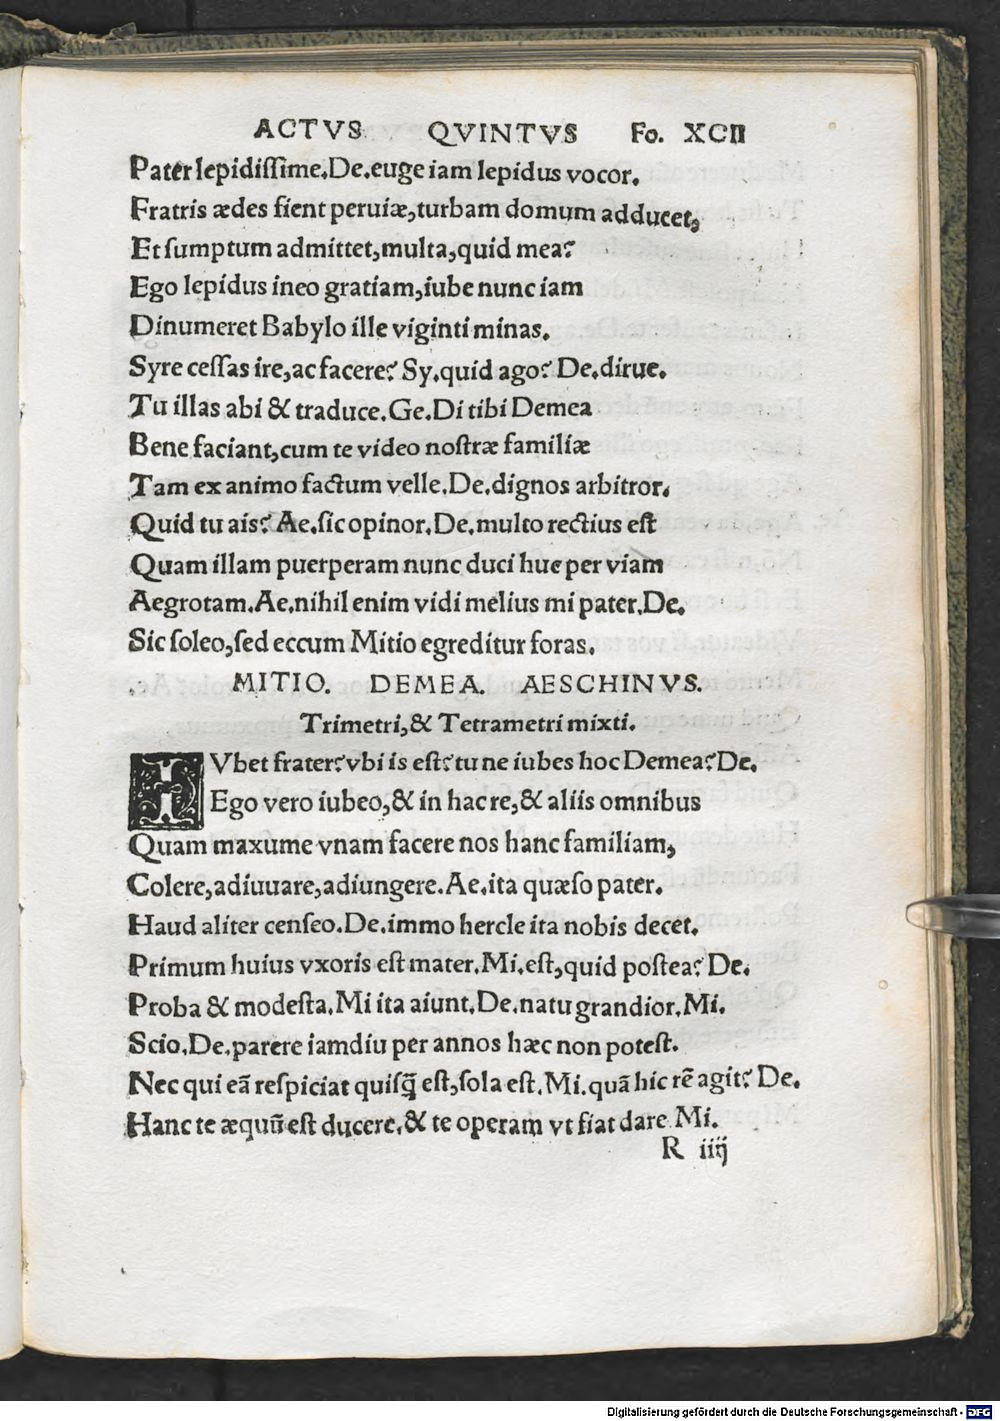 ACTVS QVINTVS Fo. XCII
Pater lepidiſſime. De. euge iam lepidus vocor.
Fratris ædes fient peruiæ, turbam domum adducet,
Et ſumptum admittet, multa, quid mea?
Ego lepidus ineo gratiam, iube nunc iam
Dinumeret Babylo ille viginti minas.
Syre ceſſas ire, ac facere? Sy. quid ago? De. dirue.
Tu illas abi & traduce. Ge. Di tibi Demea
Bene faciant, cum te video noſtræ familiæ
Tam ex animo factum velle. De. dignos arbitror.
Quid tu ais? Ae. ſic opinor. De. multo rectius eſt
Quam illam puerperam nunc duci huc per viam
Aegrotam. Ae. nihil enim vidi melius mi pater. De.
Sic ſoleo, ſed eccum Mitio egreditur foras.
MITIO. DEMEA. AESCHINVS.
Trimetri, & Tetrametri mixti.
IVbet frater? vbi is eſt? tu ne iubes hoc Demea? De.
Ego vero iubeo, & in hac re, & aliis omnibus
Quam maxume vnam facere nos hanc familiam,
Colere, adiuuare, adiungere. Ae. ita quæſo pater.
Haud aliter cenſeo. De. immo hercle ita nobis decet.
Primum huius vxoris eſt mater. Mi. eſt, quid poſtea? De.
Proba & modeſta. Mi ita aiunt. De. natu grandior. Mi.
Scio. De. parere iamdiu per annos hæc non poteſt.
Nec qui eã reſpiciat quiſq̃ eſt, ſola eſt. Mi. quã hic rẽ agit? De.
Hanc te æquũ eſt ducere, & te operam vt fiat dare Mi.
R iiij
Digitalisierung gefördert durch die Deutsche Forschungsgemeinschaft - DFG